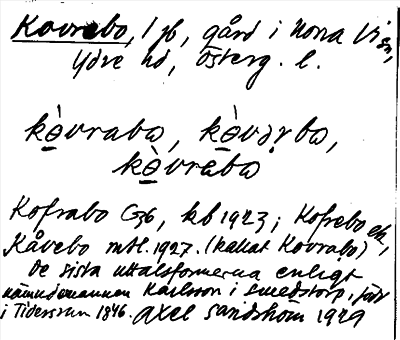 Kovrebo, 1 gb, gård i Norra Vi sn,
Ydre hd, Österg. l.
kɵ̀vraba, kɵ̀vərba,
kɵ̀vraba
Kofrabo G36, kb 1923; Kofrebo ek,
Kåvebo mtl. 1927. (kallat Kovrabo)
De sista uttalsformerna enligt
nämndemannen Karlsson i Smedstorp, född
i Tidersrum 1846. Axel Sandsholm 1929